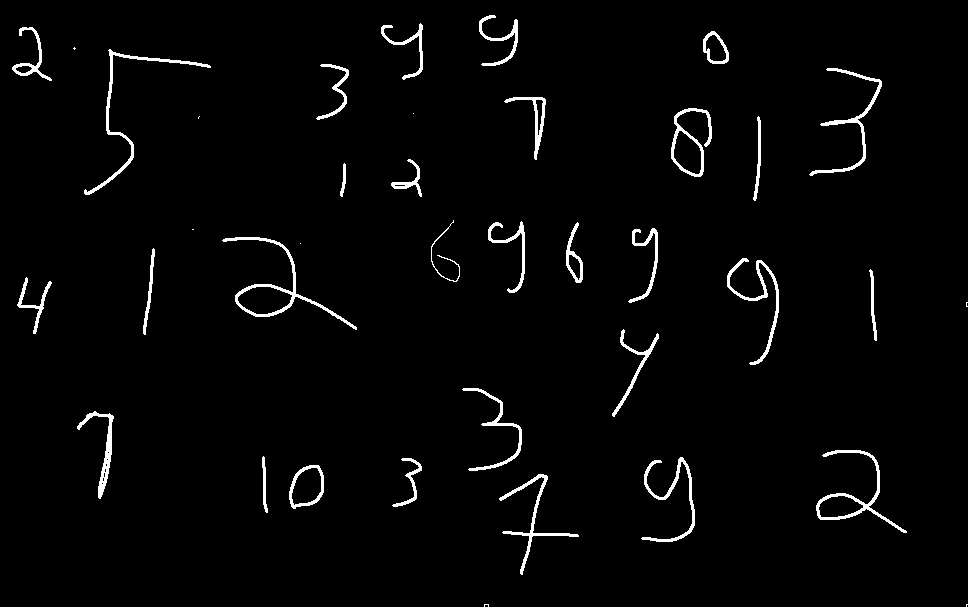 2 5 3 9 9 0
7 8 1 3
1 2
4 1 2 6 9 6 9 9 1
4
7 10 3 3 9 2
7